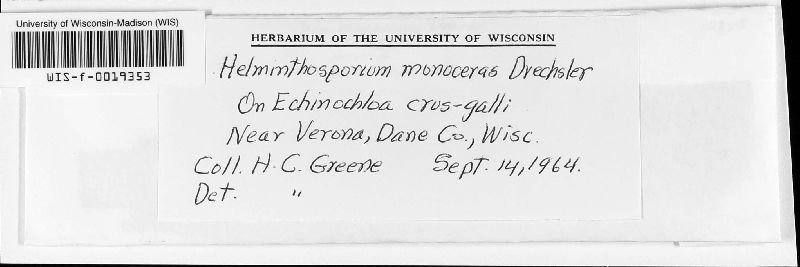 University of Wisconsin-Madison (WIS)
WIS-f-0019353
HERBARIUM OF THE UNIVERSITY OF WISCONSIN
Helminthosporium monoceras Drechsler
On Echinochloa crus-galli
Near Verona, Dane Co., Wisc.
Coll. H. C. Greene Sept. 14, 1964.
Det. "